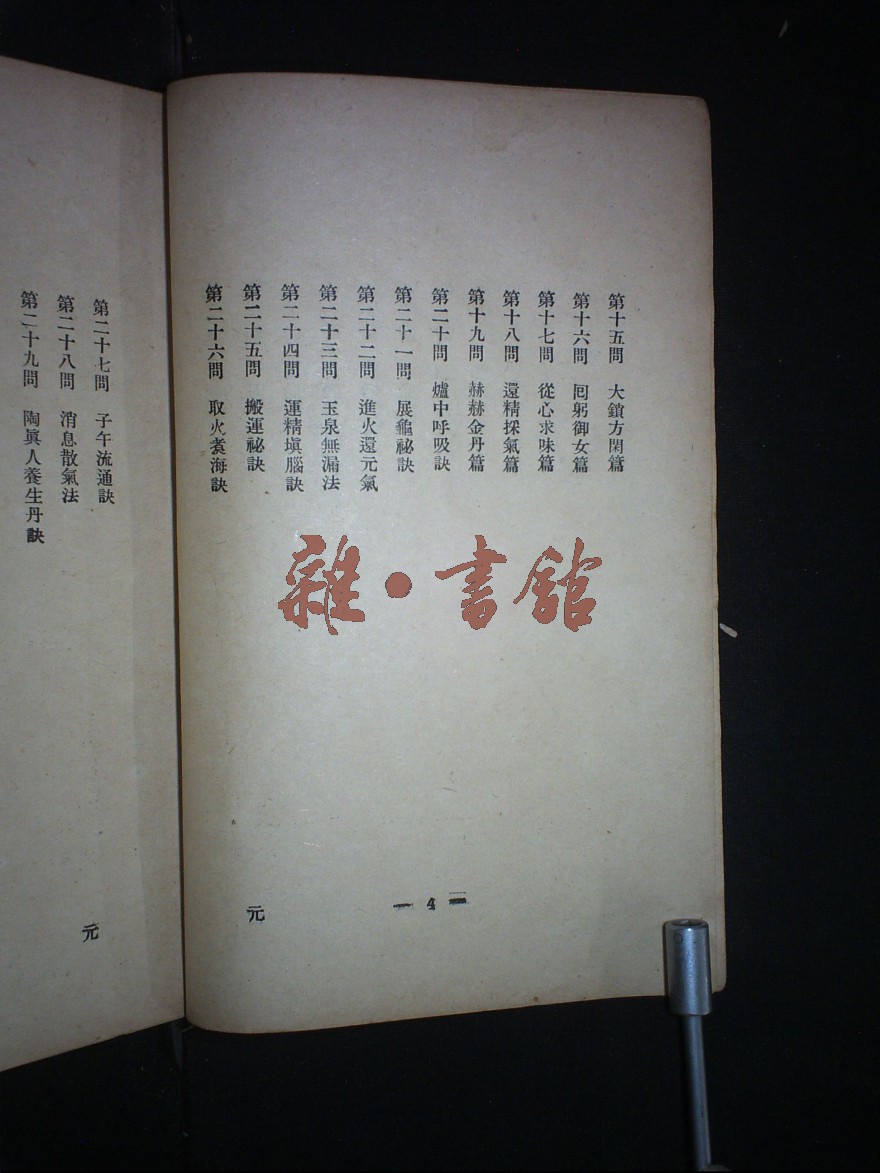 第十五問　大鎖方閑篇
第十六問　囘躬御女篇
第十七問　從心求味篇
第十八問　還精採氣篇
第十九問　赫赫金丹篇
第二十問　爐中呼吸訣
第二十一問　展龜祕訣
第二十二問　進火還元氣
第二十三問　玉泉無漏法
第二十四問　運精塡腦訣
第二十五問　搬運祕訣
第二十六問　取火煑海訣
元
4
第二十七問　子午流通訣
第二十八問　消息散氣法
第二十九問　陶眞人養生丹訣
元
雜・書館